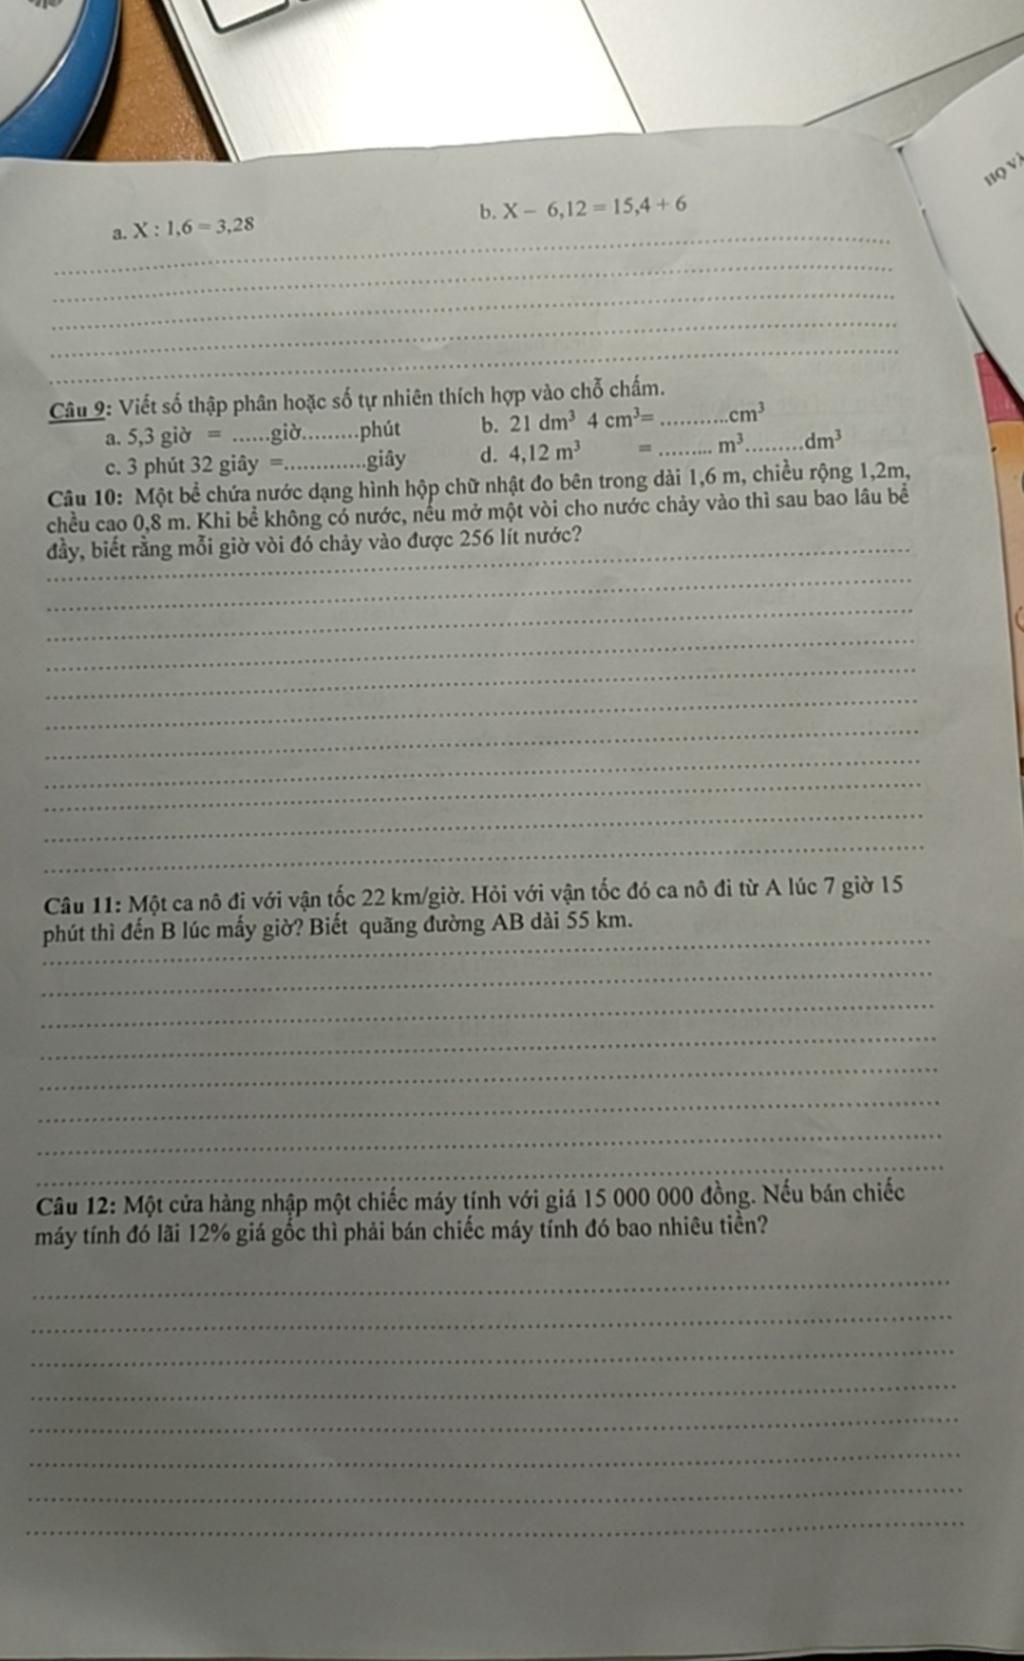 a. X : 1,6 = 3,28
b. X – 6,12 = 15,4 + 6
Câu 9: Viết số thập phân hoặc số tự nhiên thích hợp vào chỗ chấm.
a. 5,3 giờ = ......giờ.........phút
b. 21 dm³ 4 cm³= ...........cm³
c. 3 phút 32 giây =.............giây
d. 4,12 m³ = ......... m³.........dm³
Câu 10: Một bể chứa nước dạng hình hộp chữ nhật đo bên trong dài 1,6 m, chiều rộng 1,2m,
chều cao 0,8 m. Khi bể không có nước, nếu mở một vòi cho nước chảy vào thì sau bao lâu bể
đầy, biết rằng mỗi giờ vòi đó chảy vào được 256 lít nước?
Câu 11: Một ca nô đi với vận tốc 22 km/giờ. Hỏi với vận tốc đó ca nô đi từ A lúc 7 giờ 15
phút thì đến B lúc mấy giờ? Biết quãng đường AB dài 55 km.
Câu 12: Một cửa hàng nhập một chiếc máy tính với giá 15 000 000 đồng. Nếu bán chiếc
máy tính đó lãi 12% giá gốc thì phải bán chiếc máy tính đó bao nhiêu tiền?